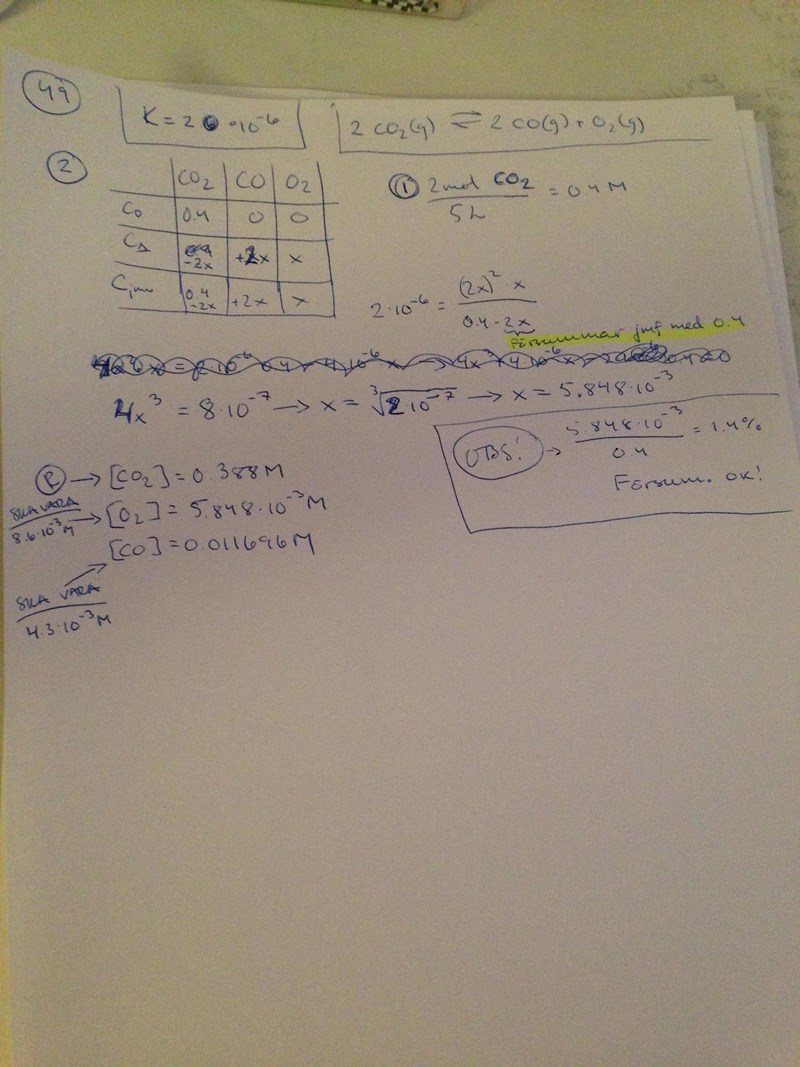 49
K = 2 · 10⁻⁶
2 CO₂(g) ⇌ 2 CO(g) + O₂(g)
① 2 mol CO₂ / 5 L = 0.4 M
②
CO₂ CO O₂
C₀ 0.4 0 0
C∆ -2x +2x x
0.4 -2x +2x x
2·10⁻⁶ = (2x)² x / 0.4 - 2x
försummar jmf med 0.4
4x³ = 8·10⁻⁷ → x = ³√2 10⁻⁷ → x = 5.848·10⁻³
OBS! → 5.848·10⁻³ / 0.4 = 1.4%
Försum. OK!
→ [CO₂] = 0.388 M
SKA VARA 8.6·10⁻³ M → [O₂] = 5.848·10⁻³ M
[CO] = 0.011696 M
SKA VARA
4.3·10⁻³ M